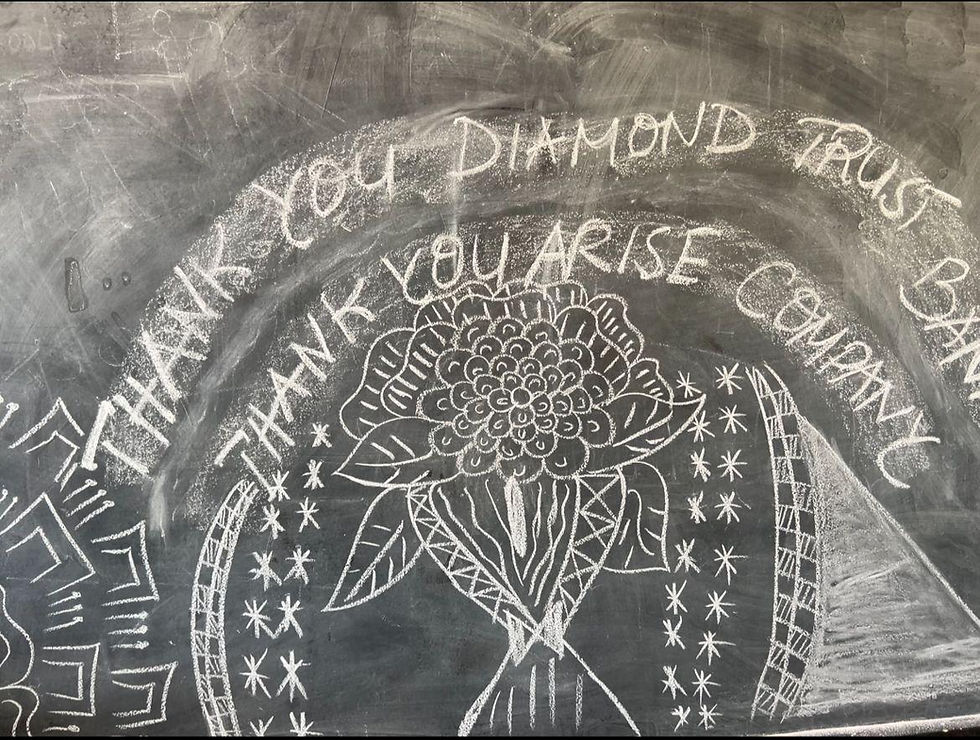 THANK YOU DIAMOND TRUST BAN
THANK YOU ARISE COMPANY